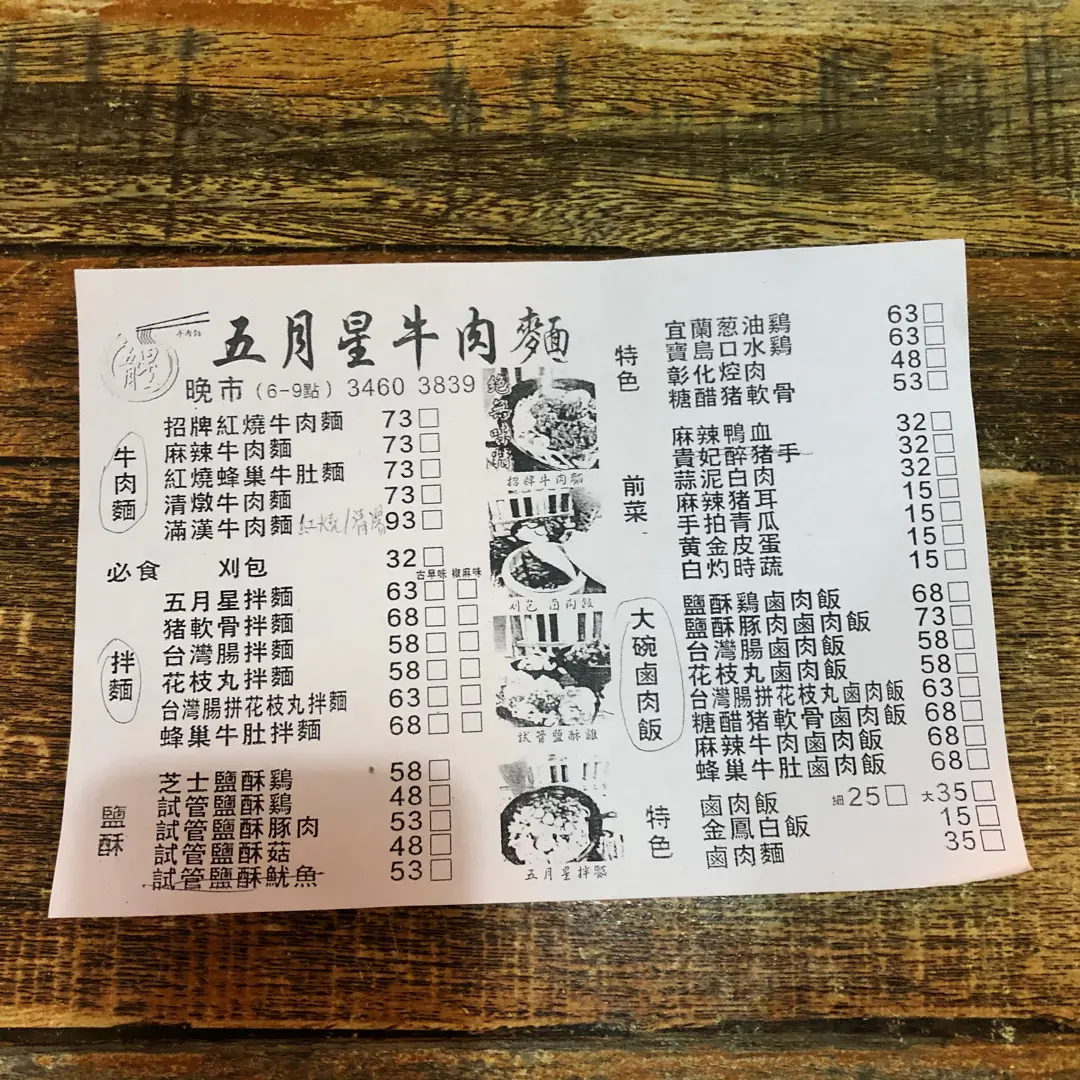 五月星牛肉麵
晚市 (6-9點) 3460 3839
牛肉麵
招牌紅燒牛肉麵 73□
麻辣牛肉麵 73□
紅燒蜂巢牛肚麵 73□
清燉牛肉麵 73□
滿漢牛肉麵 紅燒/清湯 93□
必食 刈包 32□
古早味 椒麻味
拌麵
五月星拌麵 63□ □
猪軟骨拌麵 68□ □
台灣腸拌麵 58□ □
花枝丸拌麵 58□ □
台灣腸拼花枝丸拌麵 63□ □
蜂巢牛肚拌麵 68□ □
鹽酥
芝士鹽酥鷄 58□
試管鹽酥鷄 48□
試管鹽酥豚肉 53□
試管鹽酥菇 48□
試管鹽酥魷魚 53□
絕
招牌牛肉麵
刈包 卤肉飯
試管鹽酥雞
五月星拌麵
特色
宜蘭葱油鷄 63□
寶島口水鷄 63□
彰化焢肉 48□
糖醋猪軟骨 53□
前菜
麻辣鴨血 32□
貴妃醉猪手 32□
蒜泥白肉 32□
麻辣猪耳 15□
手拍青瓜 15□
黄金皮蛋 15□
白灼時蔬 15□
大碗鹵肉飯
鹽酥鷄鹵肉飯 68□
鹽酥豚肉鹵肉飯 73□
台灣腸鹵肉飯 58□
花枝丸鹵肉飯 58□
台灣腸拼花枝丸鹵肉飯 63□
糖醋猪軟骨鹵肉飯 68□
麻辣牛肉鹵肉飯 68□
蜂巢牛肚鹵肉飯 68□
特色
鹵肉飯 細25□ 大35□
金鳳白飯 15□
鹵肉麵 35□